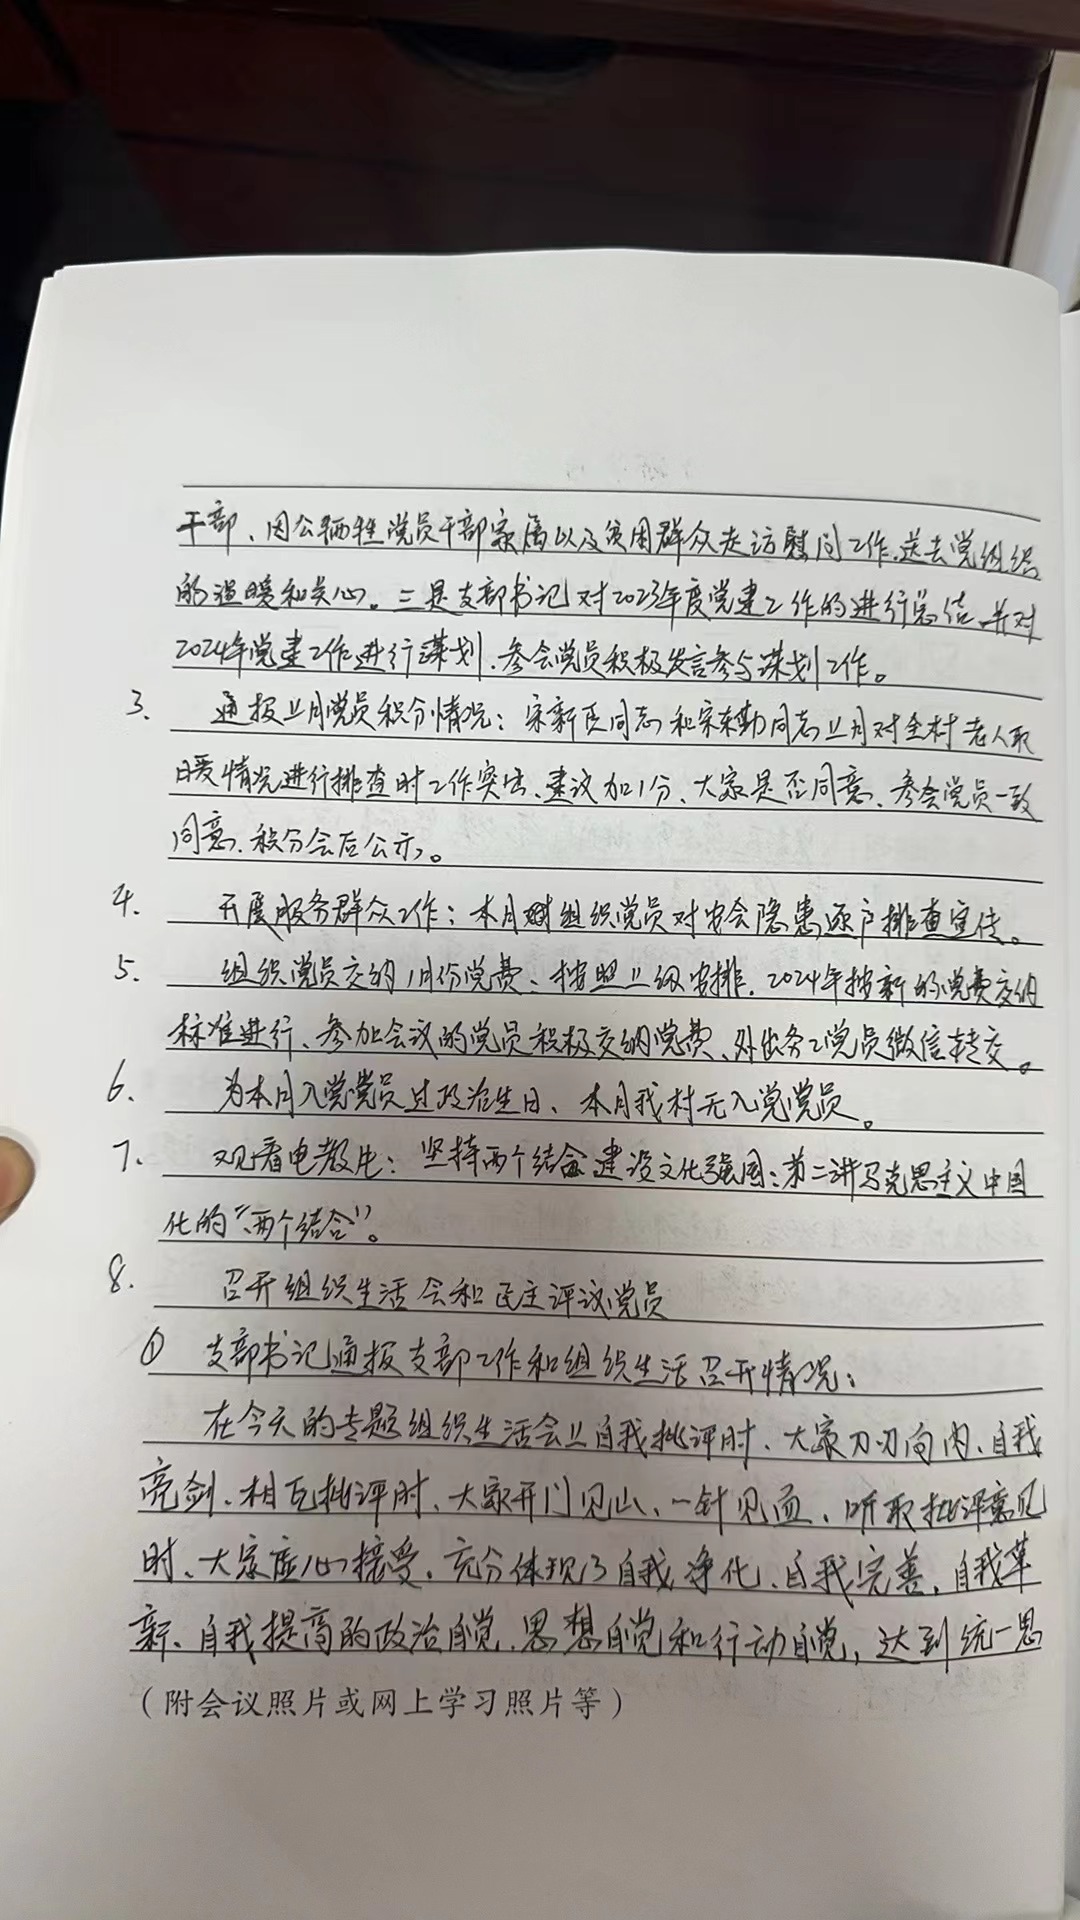 干部、因公牺牲党员干部家属以及贫困群众走访慰问工作,送去党组织
的温暖和关心。三是支部书记对2023年度党建工作的进行总结,并对
2024年党建工作进行谋划,参会党员积极发言参与谋划工作。
3. 通报上月党员积分情况:宋新臣同志和宋东勤同志上月对全村老人取
暖情况进行排查时工作突出、建议加1分、大家是否同意、参会党员一致
同意.积分会后公示。
4. 开展服务群众工作:本月组织党员对安全隐患逐户排查宣传。
5. 组织党员交纳1月份党费、按照上级安排,2024年按新的党费交纳
标准进行、参加会议的党员积极交纳党费、外出务工党员微信转交。
6. 为本月入党党员过政治生日、本月我村无入党党员。
7. 观看电教片:坚持两个结合建设文化强国:第二讲马克思主义中国
化的“两个结合”。
8. 召开组织生活会和民主评议党员
① 支部书记通报支部工作和组织生活召开情况:
在今天的专题组织生活会上自我批评时、大家刀刃向内、自我
亮剑、相互批评时、大家开门见山、一针见血、听取批评意见
时、大家虚心接受,充分体现了自我净化、自我完善、自我革
新、自我提高的政治自觉、思想自觉和行动自觉,达到统一思
(附会议照片或网上学习照片等)